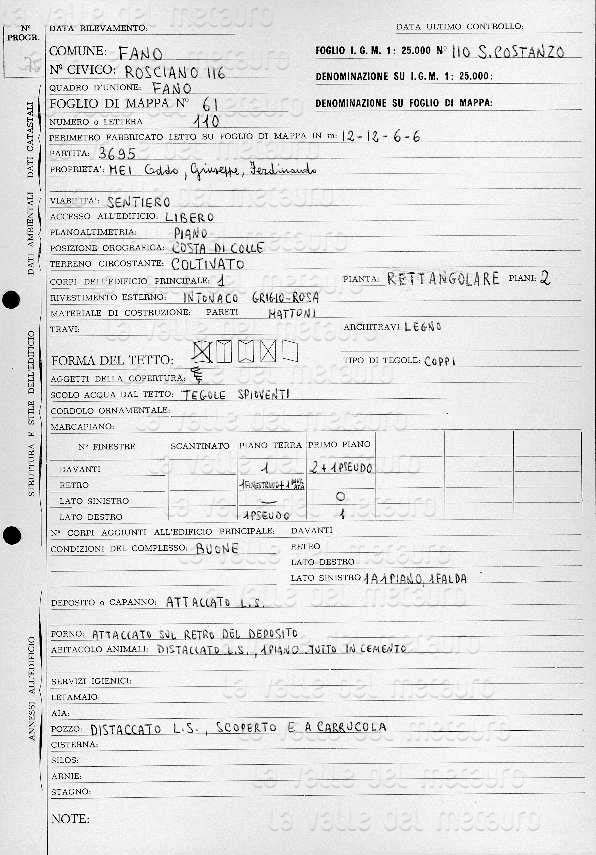 N°
PROGR.
DATA RILEVAMENTO:
DATA ULTIMO CONTROLLO:
COMUNE: FANO
FOGLIO I. G. M. 1: 25.000 N° 110 S. COSTANZO
N° CIVICO: ROSCIANO 116
DENOMINAZIONE SU I.G.M. 1: 25.000:
QUADRO D'UNIONE: FANO
FOGLIO DI MAPPA N° 61
DENOMINAZIONE SU FOGLIO DI MAPPA:
NUMERO o LETTERA 110
PERIMETRO FABBRICATO LETTO SU FOGLIO DI MAPPA IN m: 12-12-6-6
PARTITA: 3695
PROPRIETA': MEI Giuseppe, Ferdinando
DATI CATASTALI
VIABILITA': SENTIERO
ACCESSO ALL'EDIFICIO: LIBERO
PLANOALTIMETRIA: PIANO
POSIZIONE OROGRAFICA: COSTA DI COLLE
TERRENO CIRCOSTANTE: COLTIVATO
DATI AMBIENTALI
CORPI DELL'EDIFICIO PRINCIPALE: 1
PIANTA: RETTANGOLARE PIANI: 2
RIVESTIMENTO ESTERNO: INTONACO GRIGIO-ROSA
MATERIALE DI COSTRUZIONE: PARETI MATTONI
TRAVI:
ARCHITRAVI LEGNO
FORMA DEL TETTO:
TIPO DI TEGOLE: COPPI
AGGETTI DELLA COPERTURA:
SCOLO ACQUA DAL TETTO: TEGOLE SPIOVENTI
CORDOLO ORNAMENTALE:
MARCAPIANO:
N° FINESTRE SCANTINATO PIANO TERRA PRIMO PIANO
DAVANTI 1 2+1 PSEUDO
RETRO 1 FINESTRINO + 1
LATO SINISTRO — 0
LATO DESTRO 1 PSEUDO 1
STRUTTURA E STILE DELL'EDIFICIO
N° CORPI AGGIUNTI ALL'EDIFICIO PRINCIPALE: DAVANTI
CONDIZIONI DEL COMPLESSO: BUONE RETRO
LATO DESTRO
LATO SINISTRO 1 A 1 PIANO, 1 FALDA
DEPOSITO o CAPANNO: ATTACCATO L.S.
FORNO: ATTACCATO SUL RETRO DEL DEPOSITO
ABITACOLO ANIMALI: DISTACCATO L.S., 1 PIANO TUTTO IN CEMENTO
SERVIZI IGIENICI:
LETAMAIO:
AIA:
POZZO: DISTACCATO L.S., SCOPERTO E A CARRUCOLA
CISTERNA:
SILOS:
ARNIE:
STAGNO:
ANNESSI ALL'EDIFICIO
NOTE:
la valle del metauro